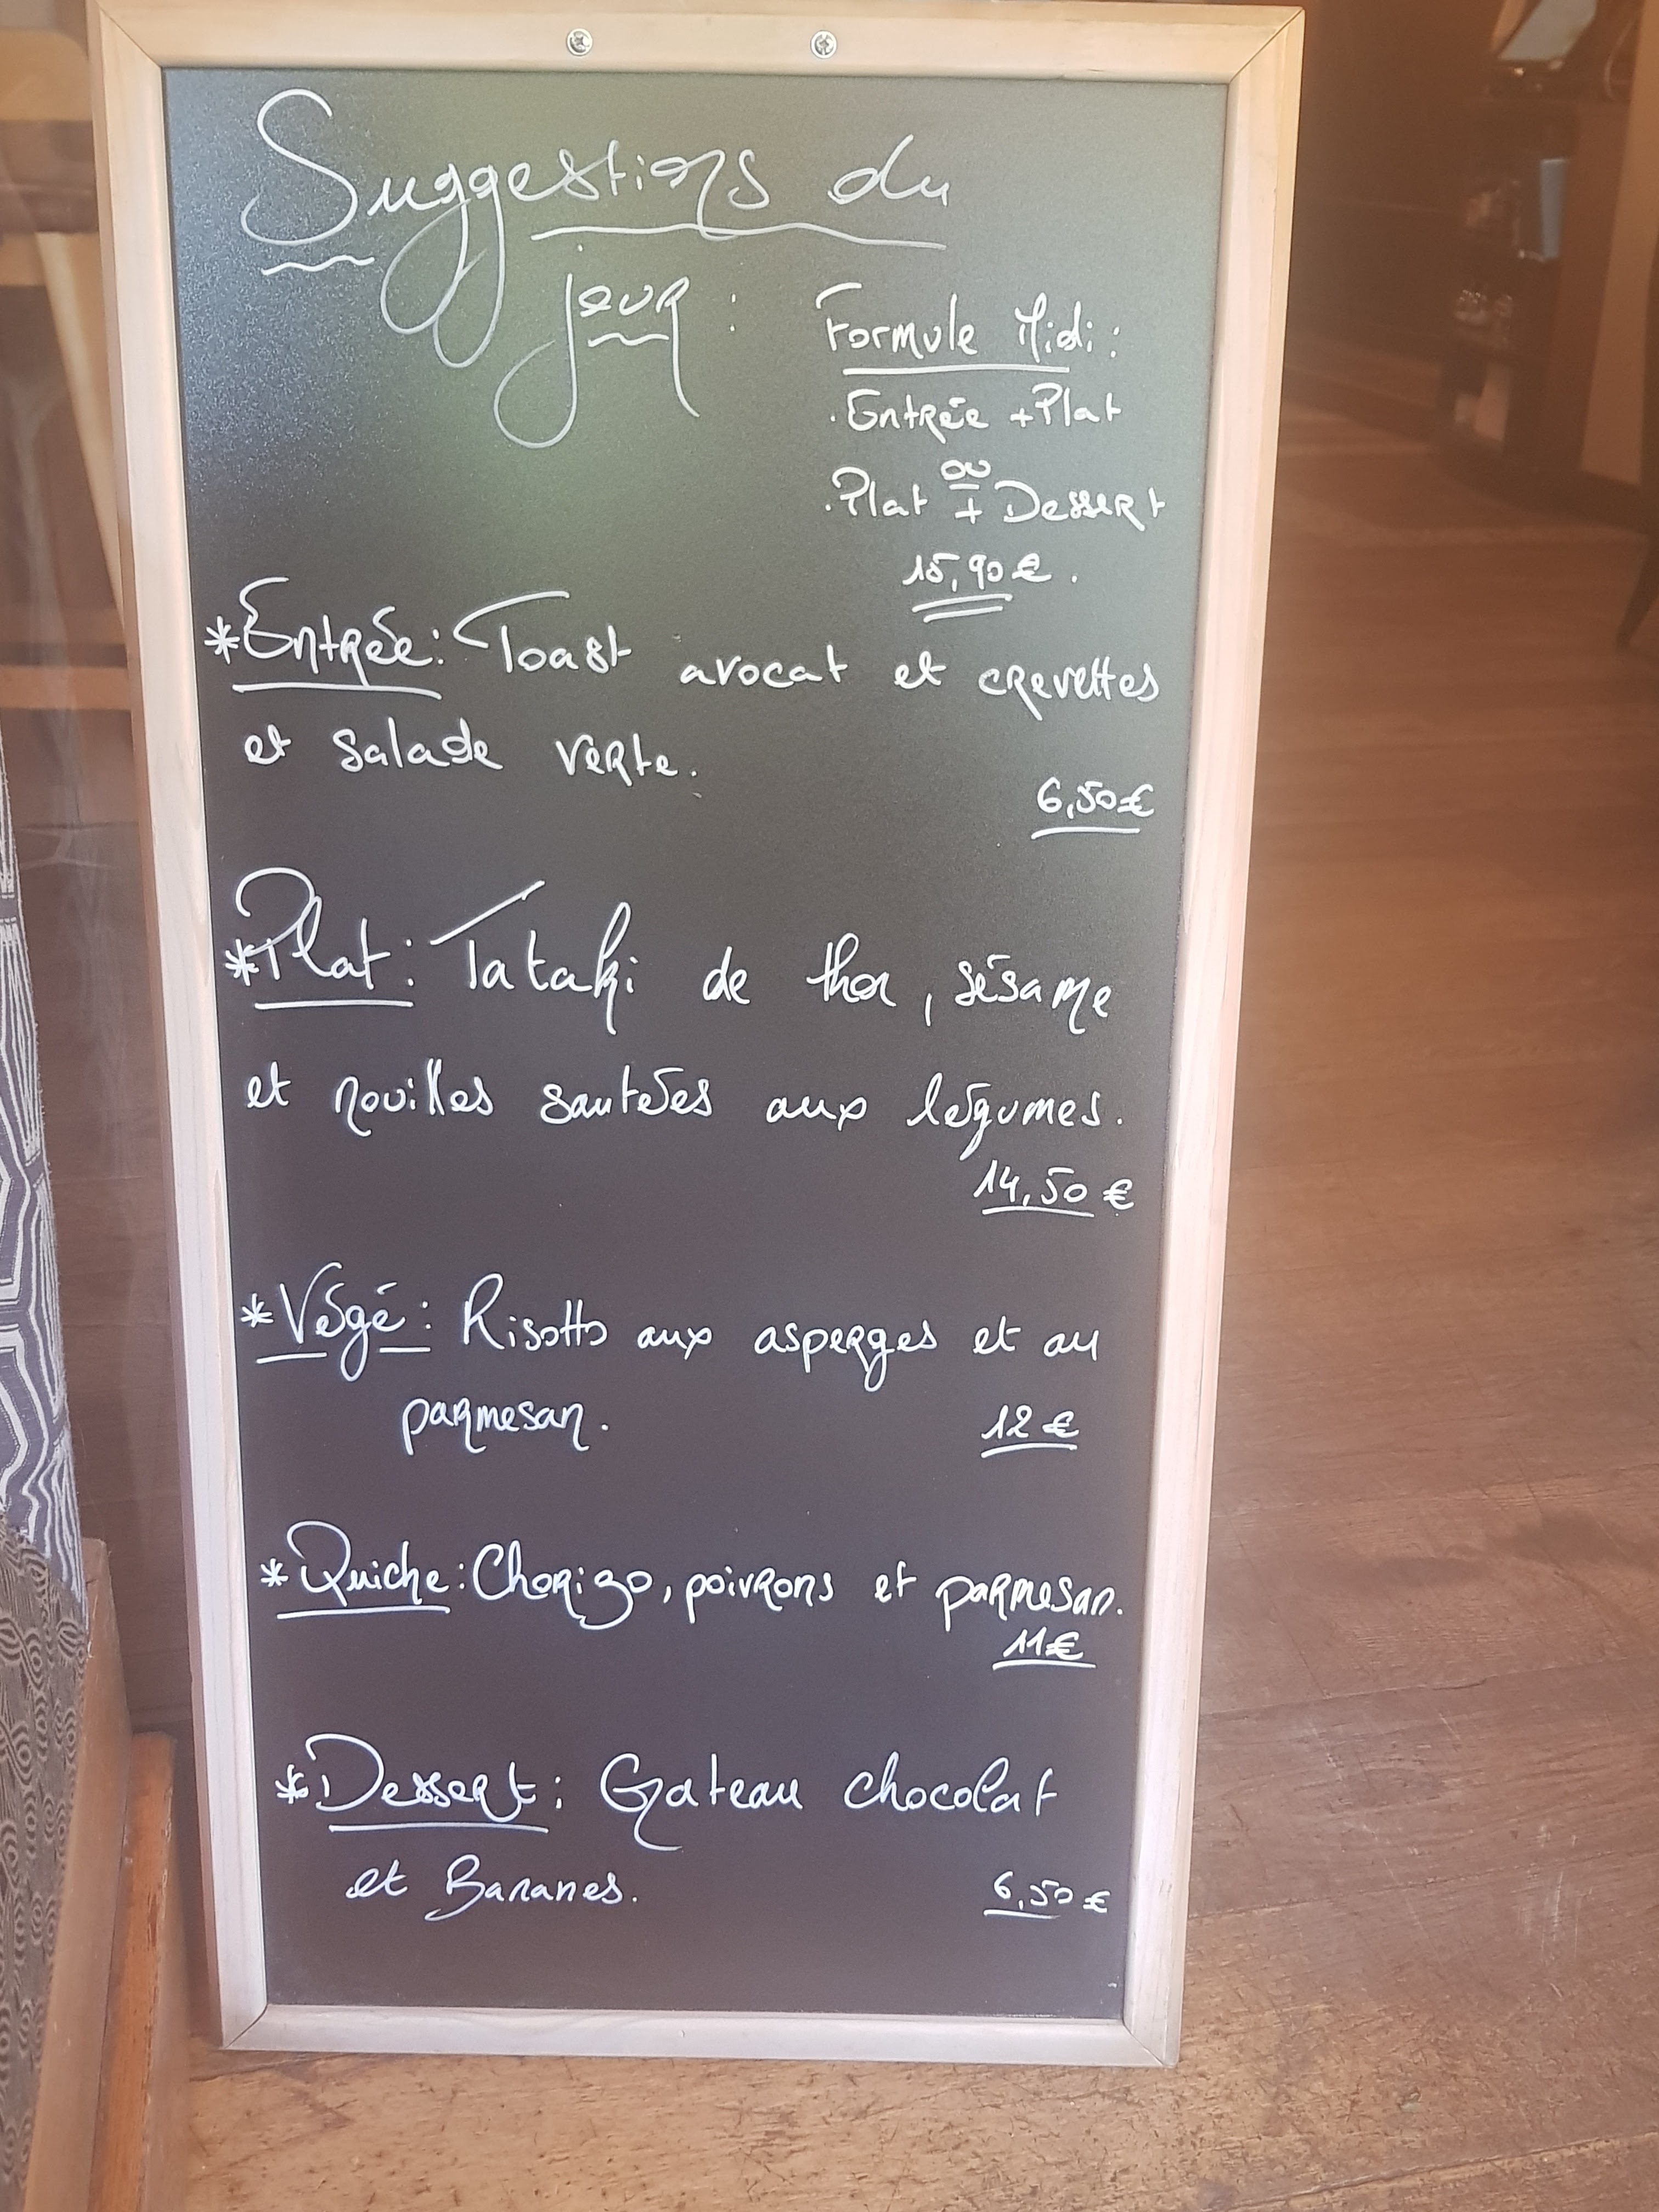 Suggestions du
jour :
Formule Midi :
. Entrée + Plat
ou
. Plat + Dessert
15,90 € .
* Entrée : Toast avocat et crevettes
et salade verte.
6,50 €
* Plat : Tataki de thon, sésame
et nouilles sautées aux légumes.
14,50 €
* Végé : Risotto aux asperges et au
parmesan.
12 €
* Quiche : Chorizo, poivrons et parmesan.
11 €
* Dessert : Gateau chocolat
et Bananes.
6,50 €